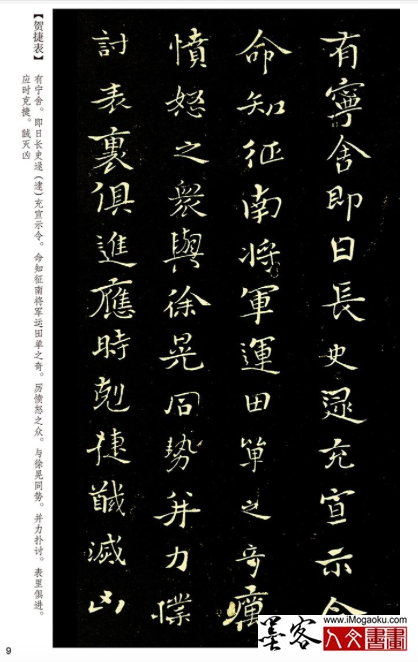 有寧舍即日長史逯充宣示令
命知征南将軍運田單之奇癘
憤怒之衆與徐晃同勢并力撲
討表裏俱進應時剋捷馘滅凶
【贺捷表】
有宁舍。即日长史逯（逮）充宣示令。命知征南将军运田单之奇。历愤怒之众。与徐晃同势。并力扑讨。表里俱进。
应时克捷。馘灭凶
9
www.iMogaoku.com
墨客
人文書畫